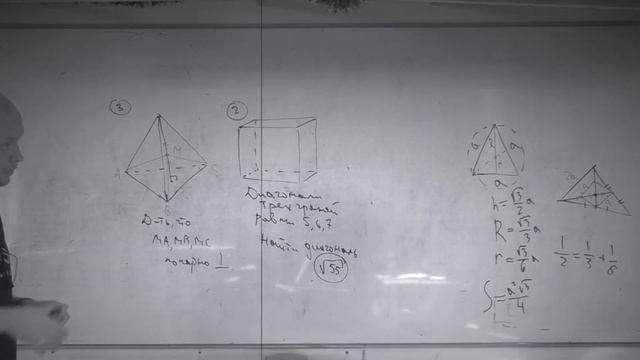 3
M
A
C
B
Д-ть, что
MA, MB, MC
попарно ⊥
2
Диагонали
трех граней
равны 5, 6, 7
Найти диагональ
√55
a
a
a
h = √3/2 a
R = √3/3 a
r = √3/6 a
S = a²√3/4
1/2 = 1/3 + 1/6